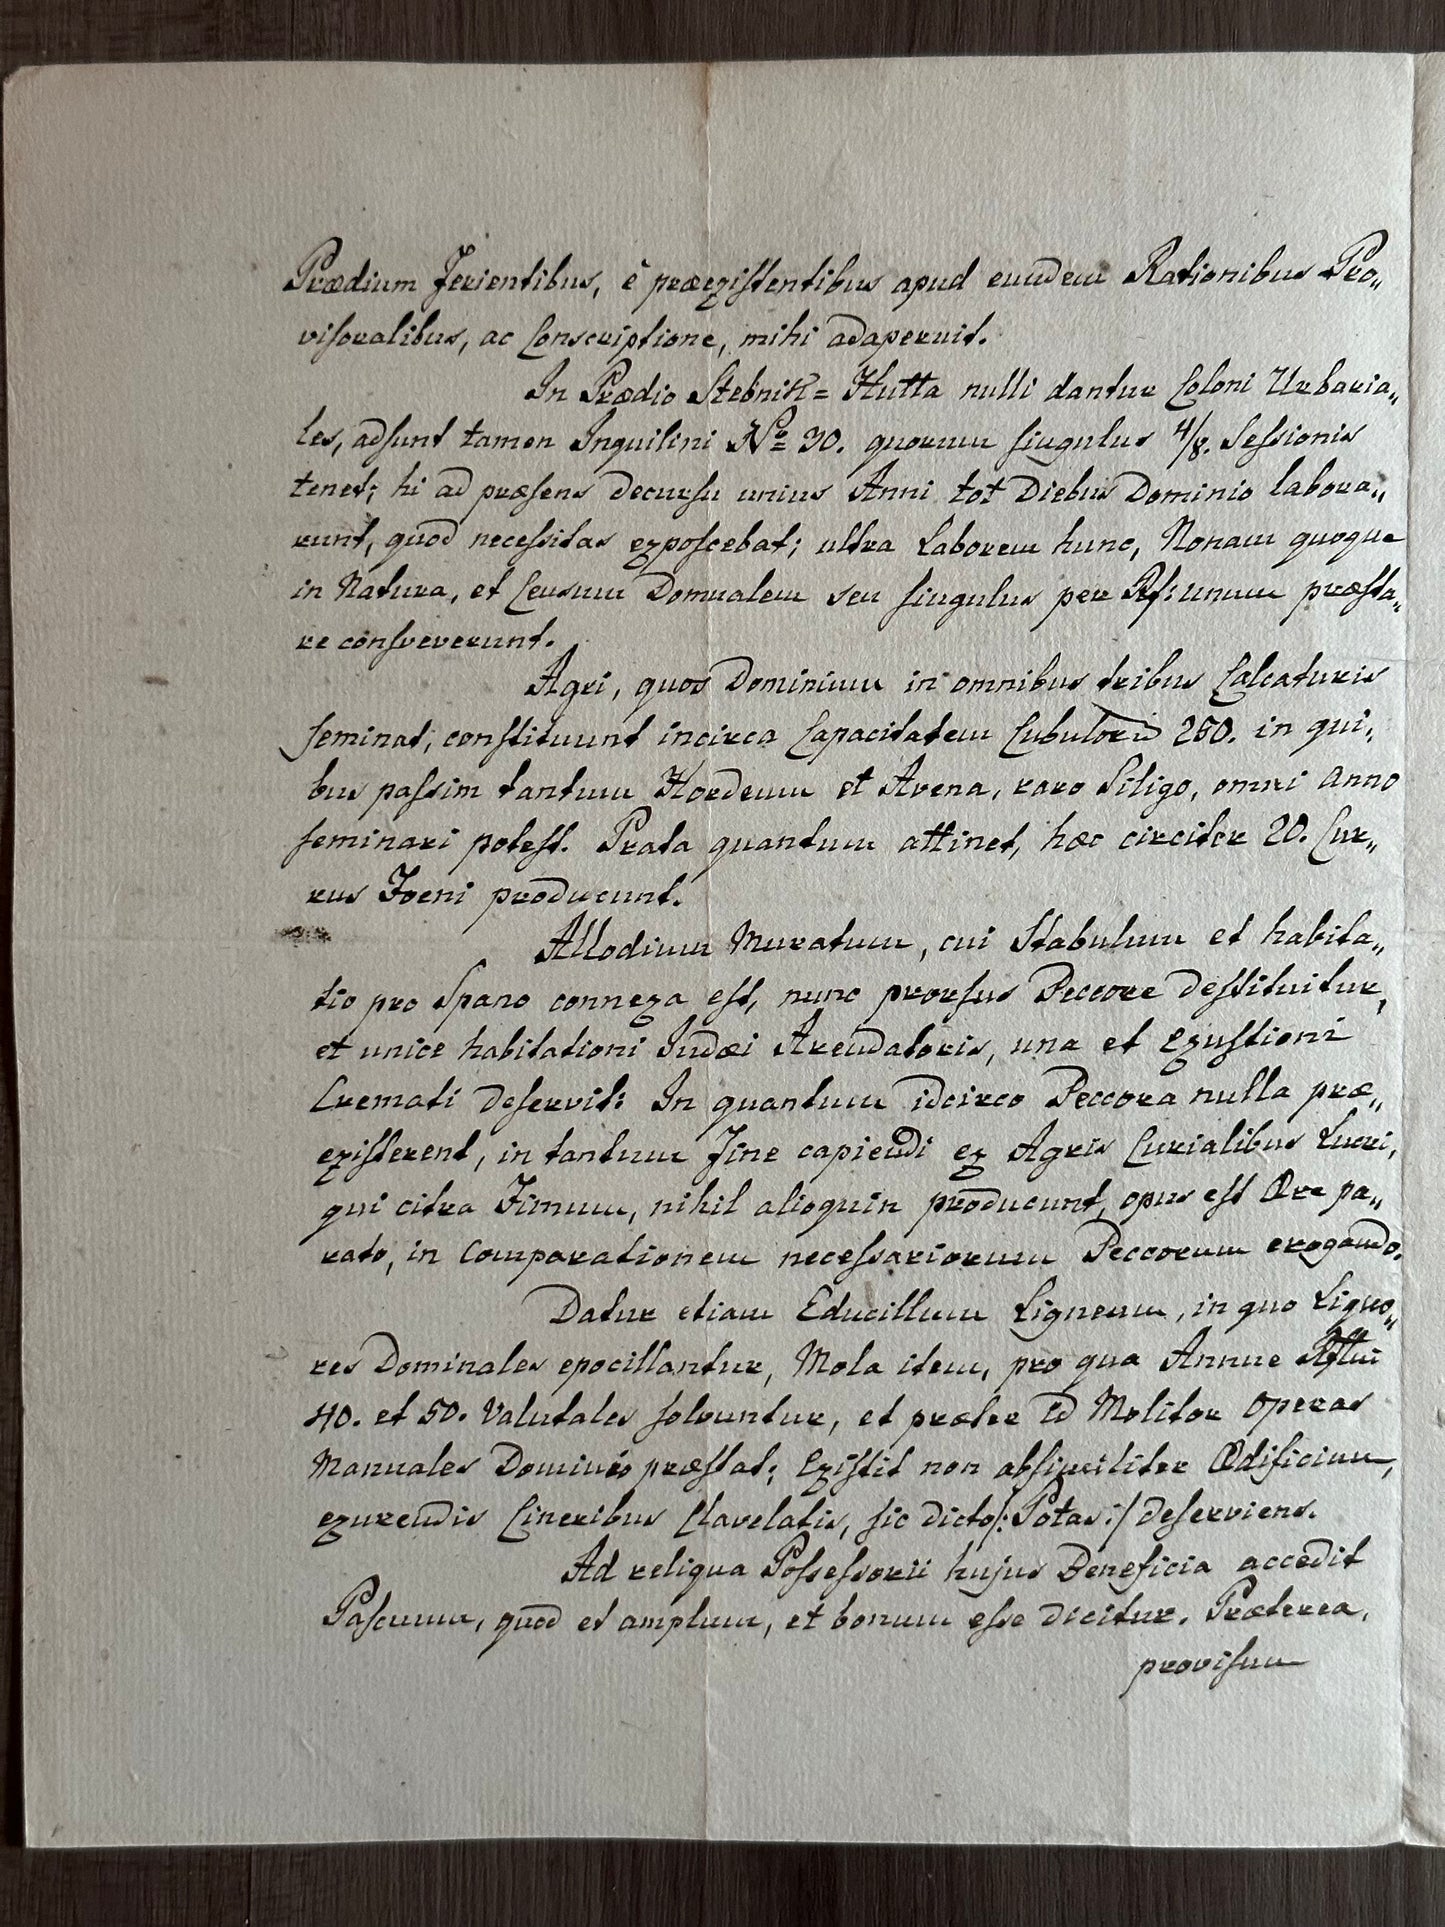 Prædium ferientibus, è præexistentibus apud eundem Rationibus Pro„
visoralibus, ac Conscriptione, mihi adaperuit.
In Prædio Stebnik= Hutta nulli dantur Coloni Urbaria„
les, adsunt tamen Inquilini No 30. quorum singulus 4/8. Sessionis
tenet; hi ad præsens decursu unius Anni tot Diebus Dominio labora„
runt, quod necessitas exposcebat; ultra Laborem hunc, Nonam quoque
in Natura, et Censum Domualem seu singulus per Rf: unum præsta„
re consveverunt.
Agri, quos Dominium in omnibus tribus Calcaturis
seminat, constituunt incirca Capacitatem Cubulorū 250. in qui„
bus passim tantum Hordeum et Avena, raro Siligo, omni anno
seminari potest. Prata quantum attinet, hæc circiter 20. Cur„
rus Foeni producunt.
Allodium Muratum, cui Stabulum et habita„
tio pro Spano connexa est, nunc prorsus Peccore destituitur,
et unice habitationi Judæi Arendatoris, una et Exustioni
Cremati deservit: In quantum idcirco Peccora nulla præ„
existerent, in tantum Fine capiendi ex Agris Curialibus Lucri,
qui citra Fimum, nihil alioquin producunt, opus est Ære pa„
rato, in Comparationem necessariorum Peccorum erogando.
Datur etiam Educillum Ligneum, in quo Liquo„
res Dominales epocillantur, Mola item, pro qua Annue
40. et 50. Valutales solvuntur, et præter id Molitor Operas
Manuales Dominio præstat; Existit non absimiliter Ædificium,
exurendis Cineribus Clavelatis, sic dicto /: Potas :/ deserviens.
Ad reliqua Possessorii hujus Beneficia accedit
Pascuum, quod et amplum, et bonum esse dicitur. Præterea,
provisum